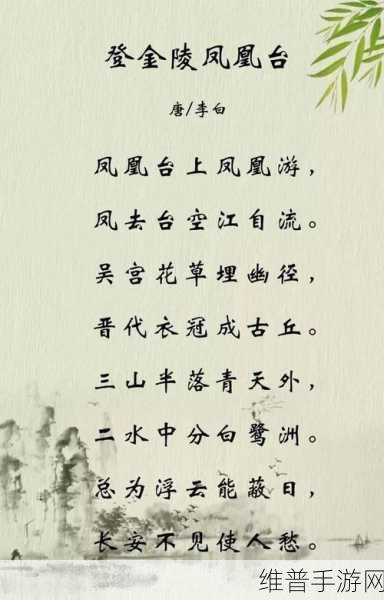 登金陵凤凰台
唐/李白
凤凰台上凤凰游，
凤去台空江自流。
吴宫花草埋幽径，
晋代衣冠成古丘。
三山半落青天外，
二水中分白鹭洲。
总为浮云能蔽日，
长安不见使人愁。
维普手游网